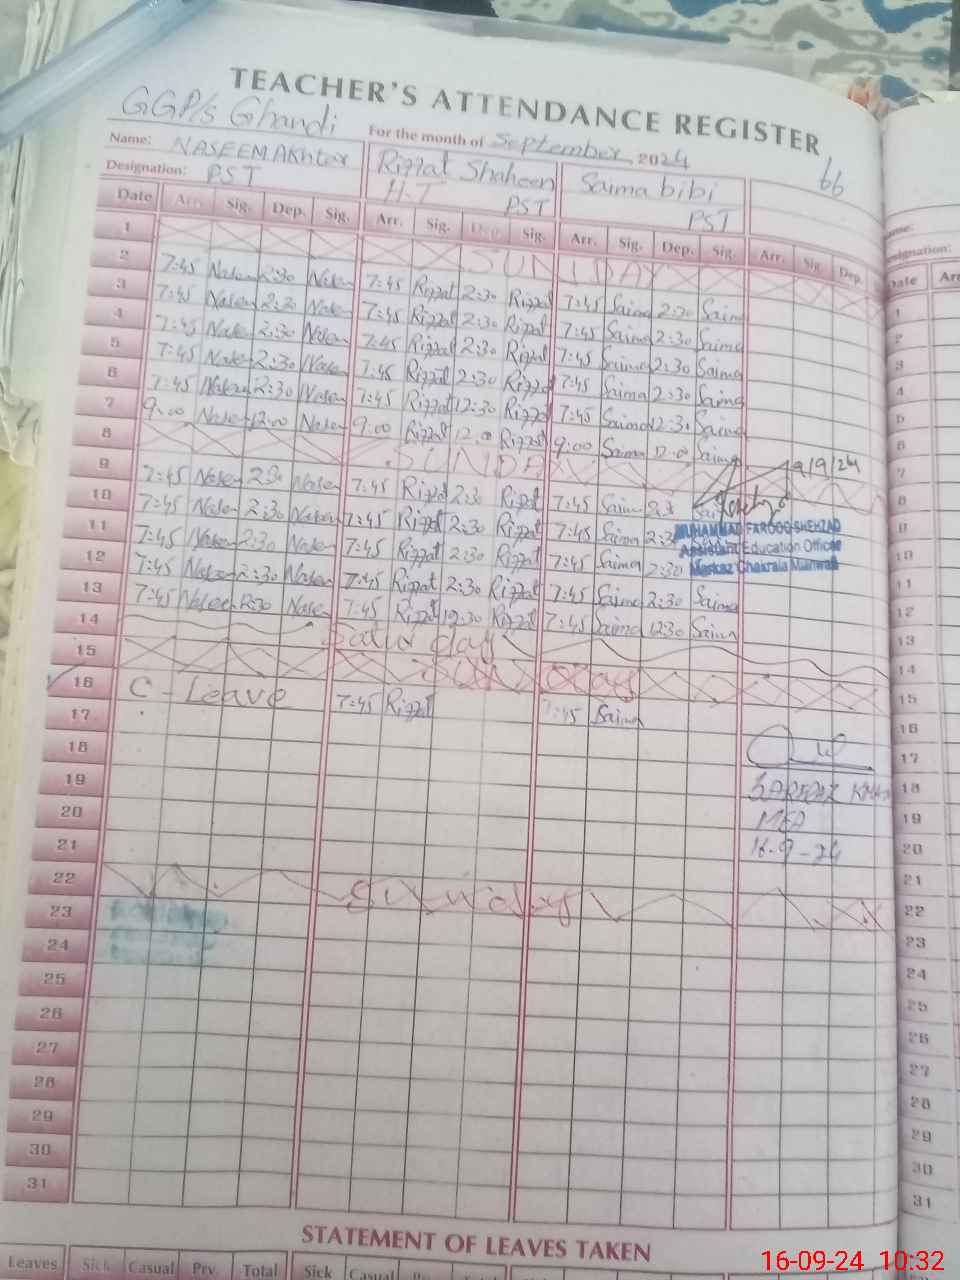 TEACHER'S ATTENDANCE REGISTER
GGP/s Ghandi
For the month of September, 2024
66
Name: NASEEM Akhtar Riffat Shaheen Saima bibi
Designation: PST H.T PST PST
Date Arr. Sig. Dep. Sig. Arr. Sig. Dep. Sig. Arr. Sig. Dep. Sig. Arr. Sig. Dep.
1 SUNDAY
2 7:45 Naseem 2:30 Naseem 7:45 Riffat 2:30 Riffat 7:45 Saima 2:30 Saima
3 7:45 Naseem 2:30 Naseem 7:45 Riffat 2:30 Riffat 7:45 Saima 2:30 Saima
4 7:45 Naseem 2:30 Naseem 7:45 Riffat 2:30 Riffat 7:45 Saima 2:30 Saima
5 7:45 Naseem 2:30 Naseem 7:45 Riffat 2:30 Riffat 7:45 Saima 2:30 Saima
6 7:45 Naseem 12:30 Naseem 7:45 Riffat 12:30 Riffat 7:45 Saima 12:30 Saima
7 9:00 Naseem 12:00 Naseem 9:00 Riffat 12:00 Riffat 9:00 Saima 12:00 Saima
8 SUNDAY
9/9/24
9 7:45 Naseem 2:30 Naseem 7:45 Riffat 2:30 Riffat 7:45 Saima 2:3
10 7:45 Naseem 2:30 Naseem 7:45 Riffat 2:30 Riffat 7:45 Saima 2:3
MUHAMMAD FAROOQ SHEHZAD
Assistant Education Officer
Markaz Chakrala Mianwali
11 7:45 Naseem 2:30 Naseem 7:45 Riffat 2:30 Riffat 7:45 Saima 2:30
12 7:45 Naseem 2:30 Naseem 7:45 Riffat 2:30 Riffat 7:45 Saima 2:30 Saima
13 7:45 Naseem 12:30 Naseem 7:45 Riffat 12:30 Riffat 7:45 Saima 12:30 Saima
14 Saturday
15 Sunday
16 C-Leave 7:45 Riffat 7:45 Saima
17
18
19
20
21
22 Sunday
23
24
25
26
27
28
29
30
31
MEA
16-9-24
STATEMENT OF LEAVES TAKEN
Leaves Sick Casual Prv. Total Sick Casual
16-09-24 10:32